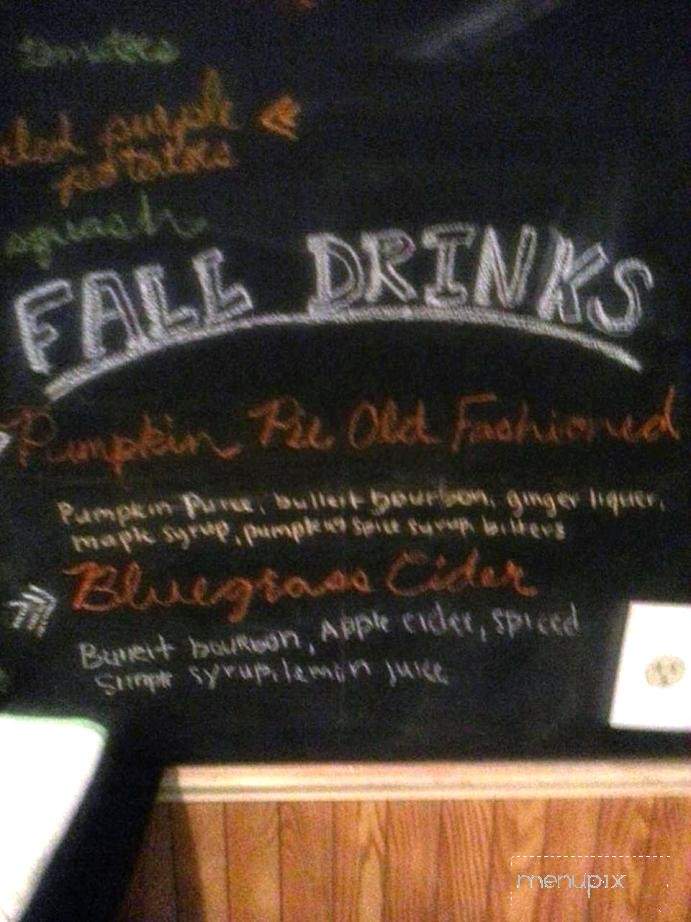 tomatoes
purple
potatoes
squash
FALL DRINKS
Pumpkin Pie Old Fashioned
Pumpkin Puree, bulleit bourbon, ginger liquer,
maple syrup, pumpkin spice syrup, bitters
Bluegrass Cider
Bulleit bourbon, Apple cider, spiced
Simple syrup, lemon juice
menupix